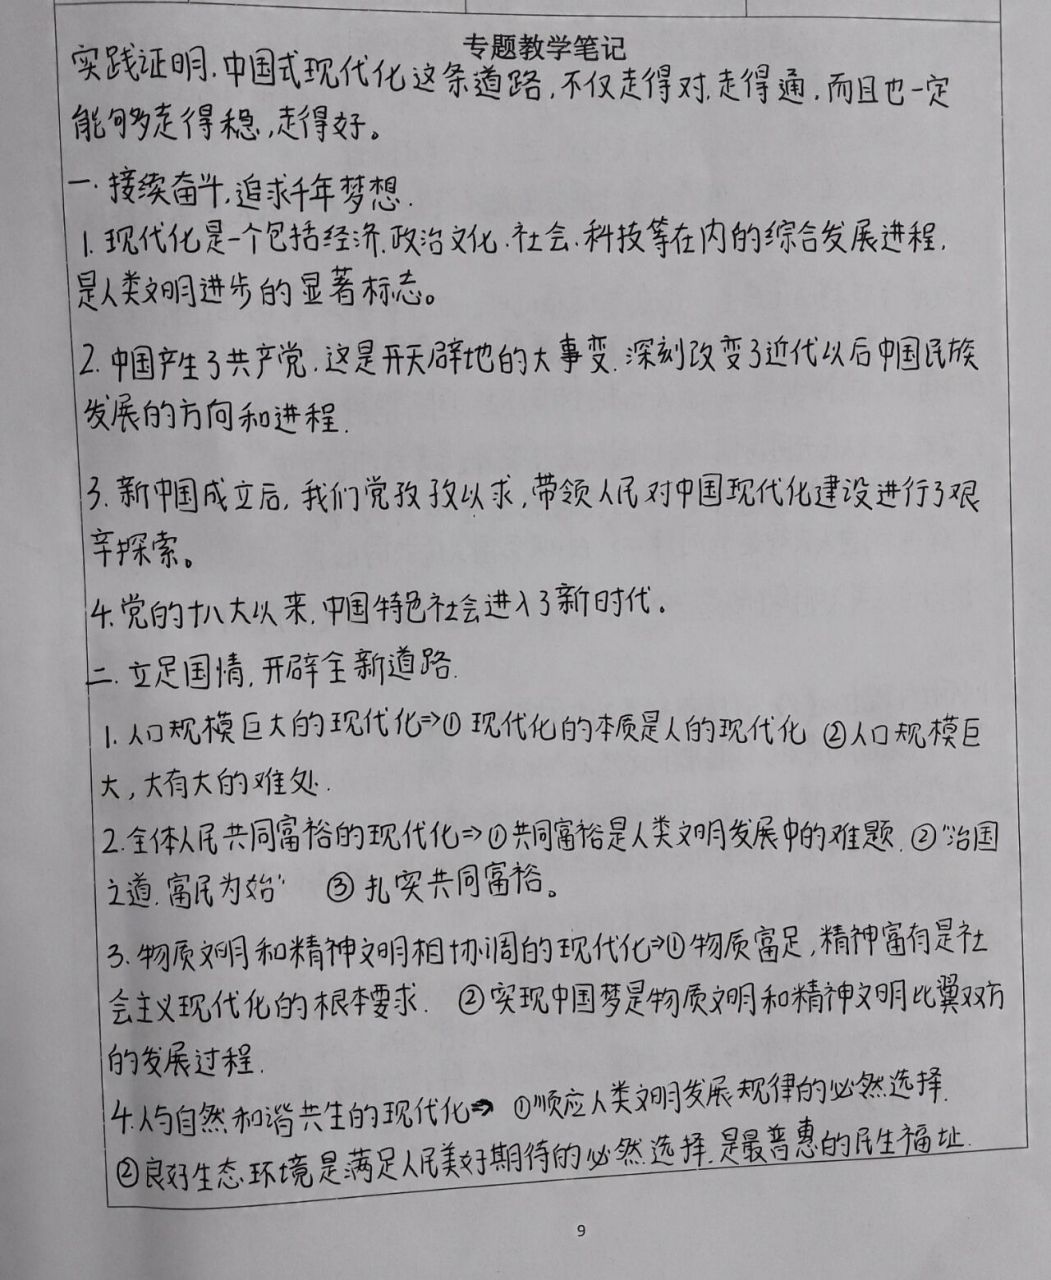 专题教学笔记
实践证明,中国式现代化这条道路,不仅走得对,走得通,而且也一定
能够走得稳,走得好。
一.接续奋斗,追求千年梦想.
1.现代化是一个包括经济、政治文化、社会、科技等在内的综合发展进程,
是人类文明进步的显著标志。
2.中国产生了共产党,这是开天辟地的大事变,深刻改变了近代以后中国民族
发展的方向和进程.
3.新中国成立后,我们党孜孜以求,带领人民对中国现代化建设进行了艰
辛探索。
4.党的十八大以来,中国特色社会进入了新时代。
二.立足国情,开辟全新道路.
1.人口规模巨大的现代化⇒①现代化的本质是人的现代化 ②人口规模巨
大,大有大的难处.
2.全体人民共同富裕的现代化⇒①共同富裕是人类文明发展中的难题.②“治国
之道,富民为始” ③扎实共同富裕。
3.物质文明和精神文明相协调的现代化⇒①物质富足,精神富有是社
会主义现代化的根本要求. ②实现中国梦是物质文明和精神文明比翼双方
的发展过程.
4.人与自然和谐共生的现代化⇒ ①顺应人类文明发展规律的必然选择.
②良好生态环境是满足人民美好期待的必然选择.是最普惠的民生福址.
9